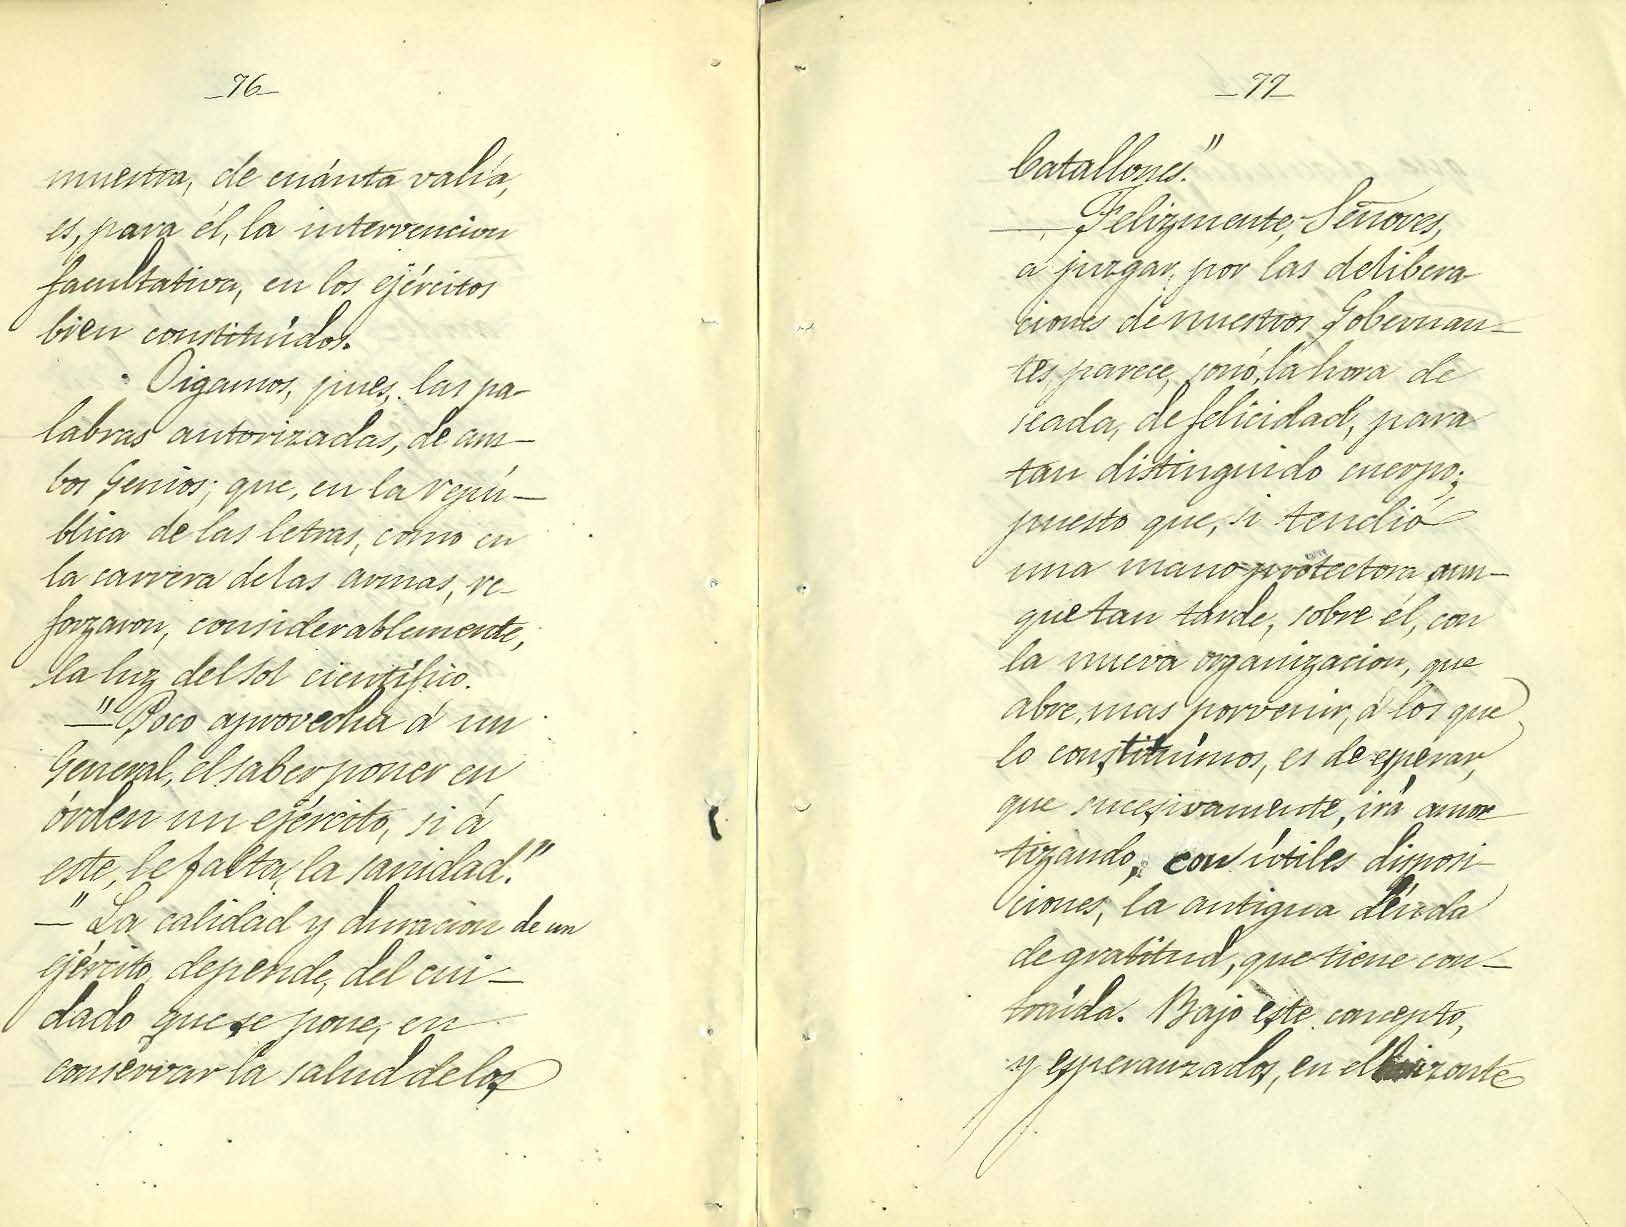 _76_
muestra, de cuánta valía,
es, para él, la intervencion
facultativa, en los ejércitos
bien constituídos.
Oigamos, pues, las pa-
labras autorizadas, de am-
bos Genios; que, en la repú-
blica de las letras, como en
la carrera de las armas, re-
forzaron, considerablemente,
la luz del sol científico.
_"Poco aprovecha á un
General, el saber poner en
órden un ejército, si á
este, le falta, la sanidad."
_"La calidad y duracion de un
ejército, depende, del cui-
dado que se pone, en
conservar la salud de los
_77_
batallones."
_. Felizmente, Señores,
á juzgar, por las delibera
ciones de nuestros Gobernan-
tes, parece, sonó, la hora de
seada, de felicidad, para
tan distinguido cuerpo;
puesto que, si tendió
una mano protectora, aun-
que tan tarde, sobre él, con
la nueva organizacion, que
abre, mas porvenir, á los que
lo constituímos, es de esperar,
que sucesivamente, irá amor
tizando, con útiles disposi-
ciones, la antigua déuda
de gratitud, que tiene con-
traída. Bajo este concepto,
y esperanzados, en el horizonte